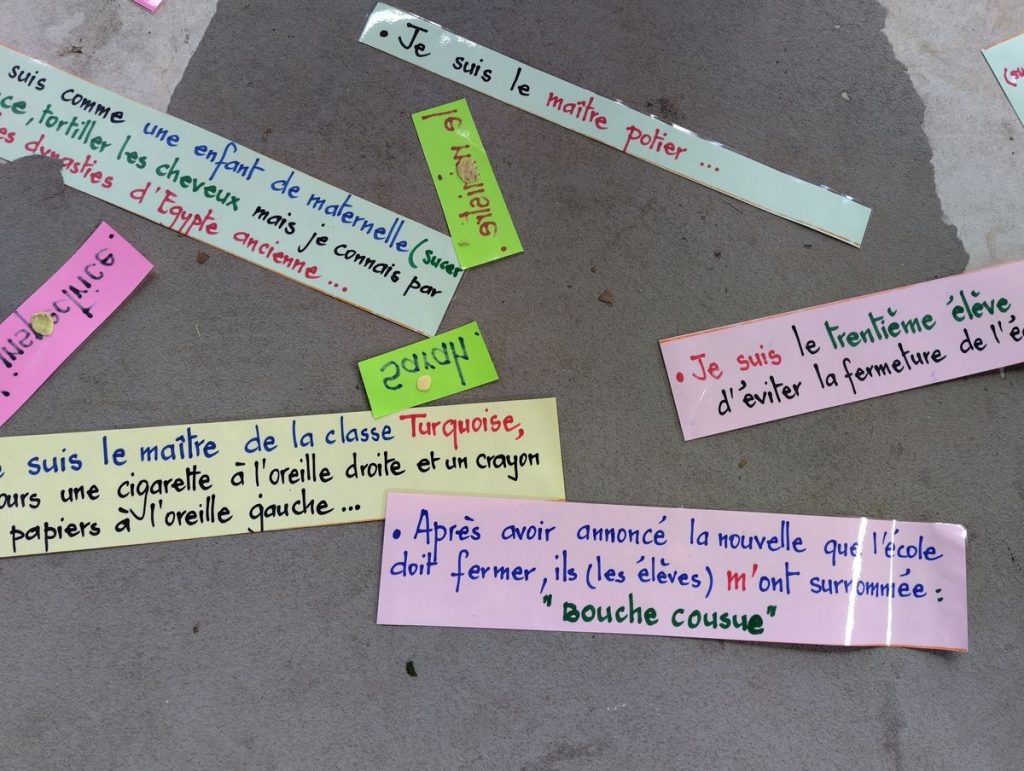 • Je suis le maître potier ...
suis comme une enfant de maternelle (sucer
tortiller les cheveux mais je connais par
dynasties d'Egypte ancienne ...
le ministre
(su
inspectrice.
• Je suis le trentième élève
d'éviter la fermeture de l'é
Sarah
suis le maître de la classe Turquoise,
une cigarette à l'oreille droite et un crayon
papiers à l'oreille gauche ...
• Après avoir annoncé la nouvelle que l'école
doit fermer, ils (les élèves) m'ont surnommée :
"Bouche cousue"